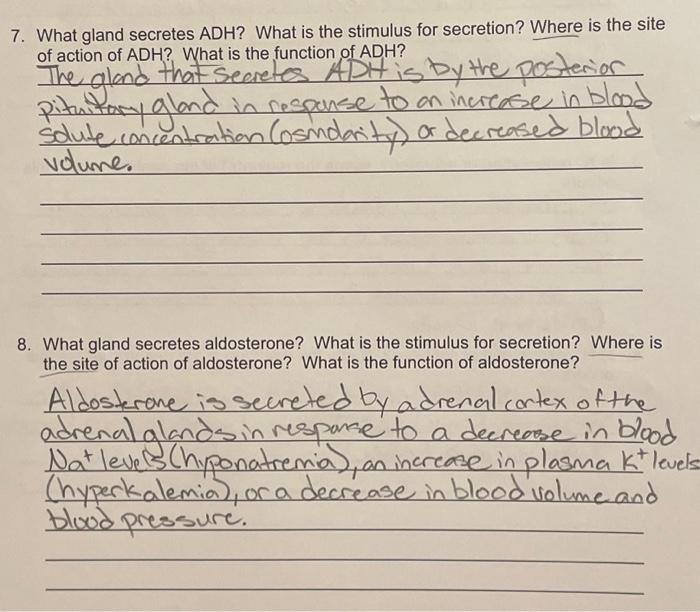 7. What gland secretes ADH? What is the stimulus for secretion? Where is the site
of action of ADH? What is the function of ADH?
The gland that secretes ADH is by the posterior
pituitary gland in response to an increase in blood
solute concentration (osmolarity) or decreased blood
volume.
8. What gland secretes aldosterone? What is the stimulus for secretion? Where is
the site of action of aldosterone? What is the function of aldosterone?
Aldosterone is secreted by adrenal cortex of the
adrenal glands in response to a decrease in blood
Na+ levels (hyponatremia), an increase in plasma K+ levels
(hyperkalemia), or a decrease in blood volume and
blood pressure.